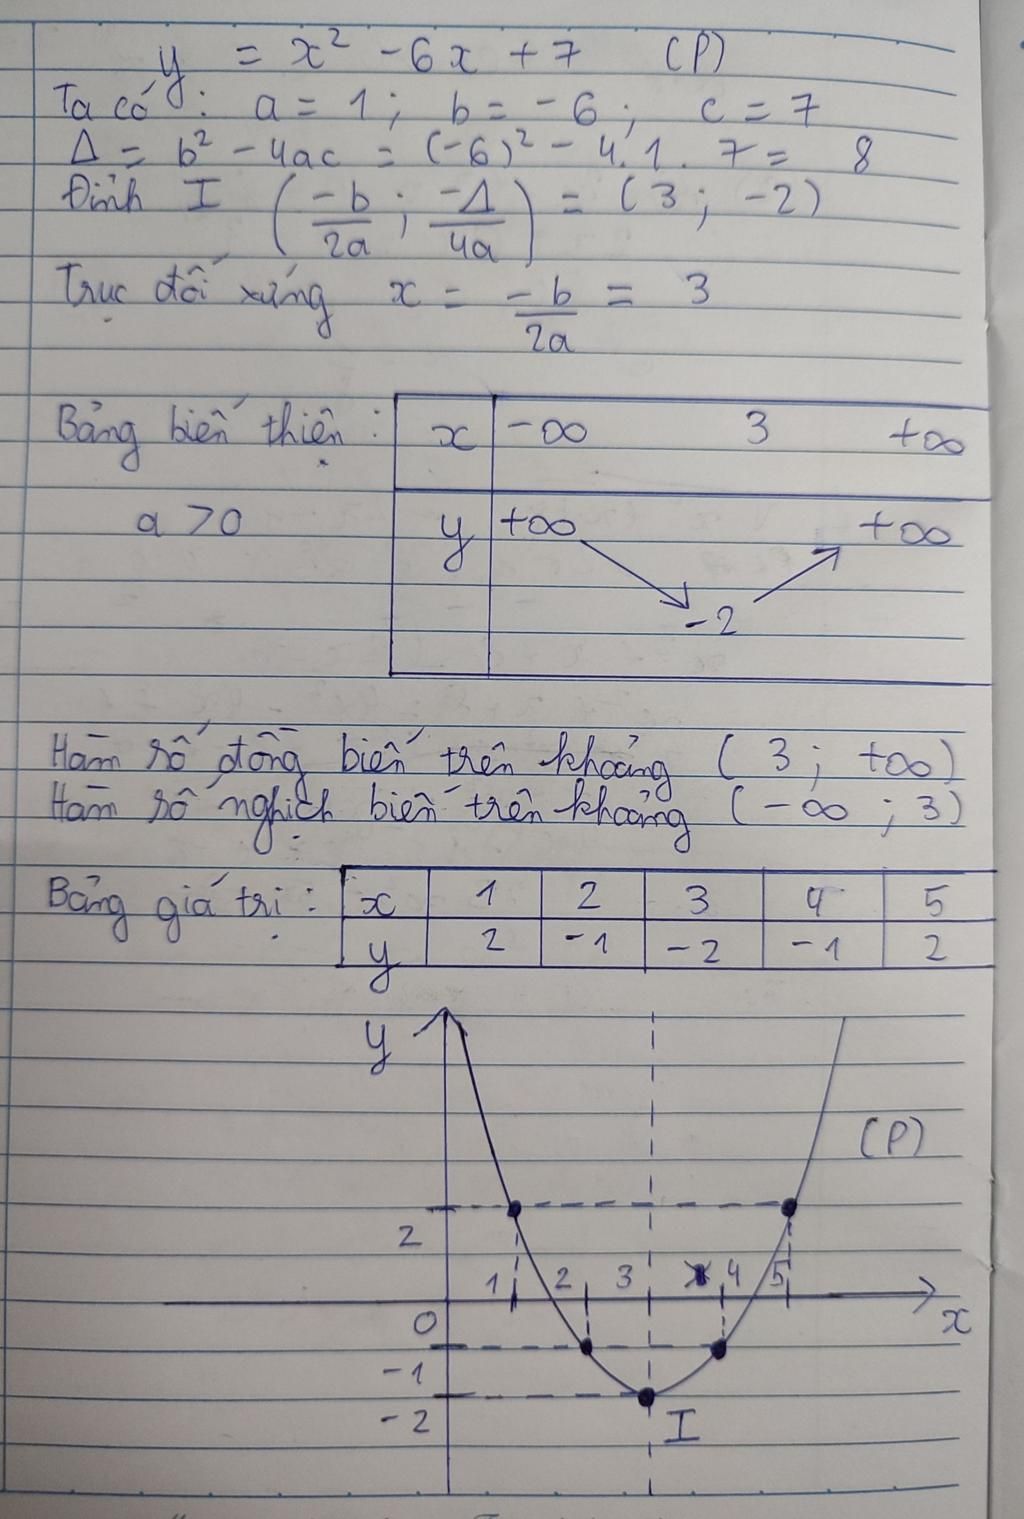 y = x² - 6x + 7 (P)
Ta có: a = 1; b = -6; c = 7
Δ = b² - 4ac = (-6)² - 4.1.7 = 8
Đỉnh I (-b/2a ; -Δ/4a) = (3; -2)
Trục đối xứng x = -b/2a = 3
Bảng biến thiện: x -∞ 3 +∞
a > 0 y +∞ -2 +∞
Hàm số đồng biến trên khoảng (3; +∞)
Hàm số nghịch biến trên khoảng (-∞; 3)
Bảng giá trị: x 1 2 3 4 5
y 2 -1 -2 -1 2
y
(P)
2
1 2 3 4 5
0 x
-1
-2 I